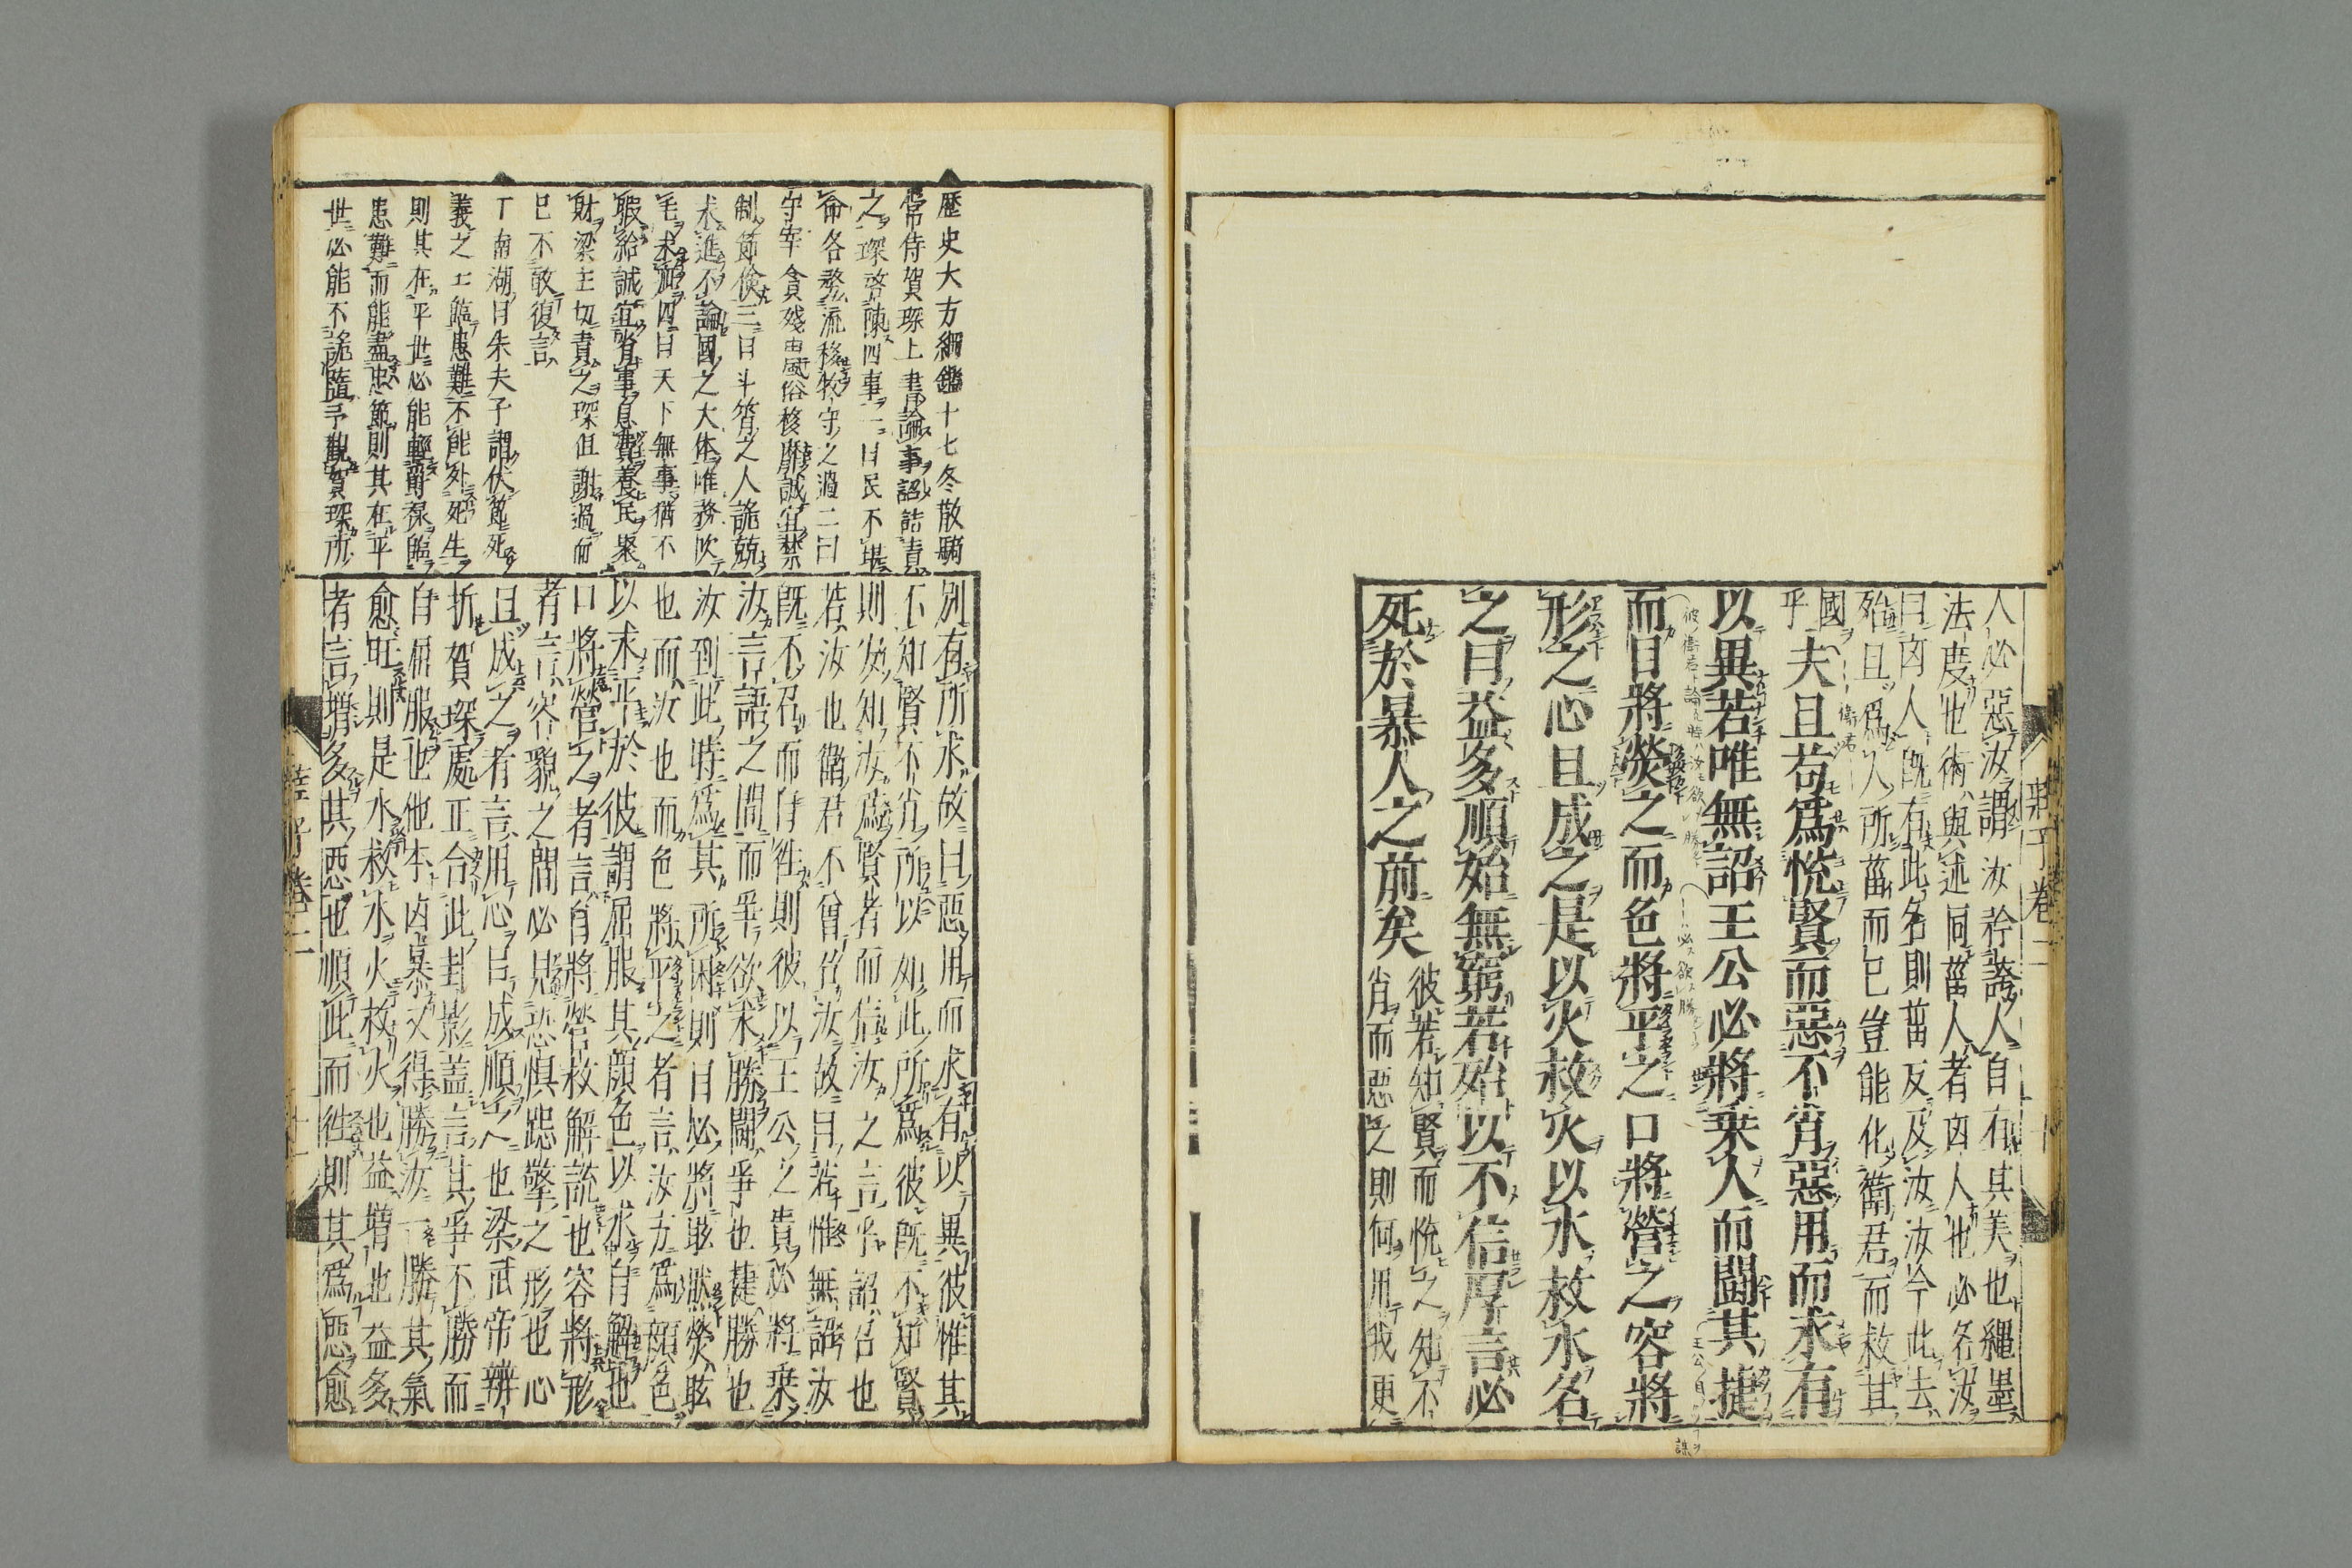 人必惡汝謂汝矜誇人自有其美也繩墨
法度也術與述同菑人者因人也必名汝
曰凶人既有此名則菑反及汝汝今此去
殆且爲人所菑而已豈能化衛君而救其
國乎
夫且苟爲悅賢而惡不肖惡用而求有
以異若唯無詔王公必將乗人而鬪其捷
而目將熒之而色將平之口將營之容將
形之心且成之是以火救火以水救水名
之曰益多順始無窮若殆以不信厚言必
死於暴人之前矣
彼若知賢而悅之知不
肖而惡之則何用我更
莊子卷二
十
歷史大方綱鑑十七冬散騎
常侍賀琛上書論事詔詰責
之琛啓陳四事一曰民不堪
命各務流移牧守之過二曰
守宰貪殘由風俗移靡誠宜禁
制節儉三曰斗筲之人詭競
求進不論國之大体唯務吹
毛求疵四曰天下無事猶不
暇給誠宜省事息費養民聚
財梁主切責之琛但謝過而
已不敢復言
丁南湖曰朱夫子謂伏節死
義之士臨患難不能外死生
則其在平世必能輕爵祿臨
患難而能盡忠節則其在平
世必能不詭隨予觀賀琛所
別有所求故曰惡用而求有以異彼惟其
不知賢不肖所以如此所爲彼既不知賢
則安知汝爲賢者而信汝之言乎詔召也
若汝也衛君不曾召汝故曰若惟無詔汝
既不召而自徃則彼以王公之貴必將乗
汝言語之間而爭欲求勝鬪爭也捷勝也
汝到此時爲其所困則目必將眩然熒眩
也而汝也而色將平之者言汝方爲顏色
以求平於彼謂屈服其顏色以求自解也
口將營之者言自將營救解說也容將形
者言容貌之間必見恐惧跽擎之形也心
且成之者言用心曰成順人也梁武帝辨
折賀琛處正合此封影蓋言其爭不勝而
自屈服也他本凶暴又得勝汝一勝其氣
愈旺則是水救水火救火也益增也益多
者言增多其惡也順此而徃則其爲惡愈
莊子卷二
十一